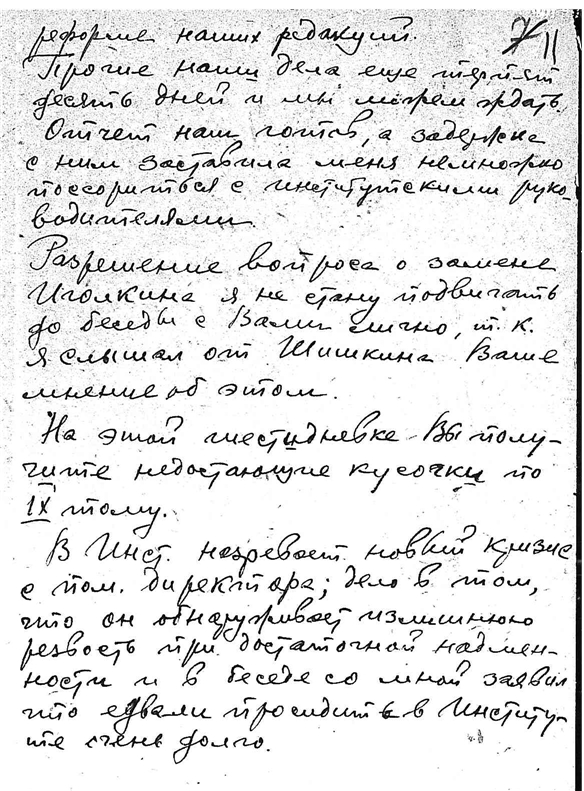 реформе наших редакций.
11
Прочие наши дела еще терпят
десять дней и мы можем ждать.
Отчет наш готов, а задержка
с ним заставила меня немножко
поссориться с институтскими руко-
водителями.
Разрешение вопроса о замене
Иголкина я не стану подвигать
до беседы с Вами лично, т.к.
я слышал от Шишкина Ваше
мнение об этом.
На этой шестидневке Вы полу-
чите недостающие кусочки по
IX тому.
В Инст. назревает новый кризис
с пом. директора; дело в том,
что он обнаруживает излишнюю
резвость при достаточной надмен-
ности и в беседе со мной заявил
что едвали просидит в Институ-
те очень долго.